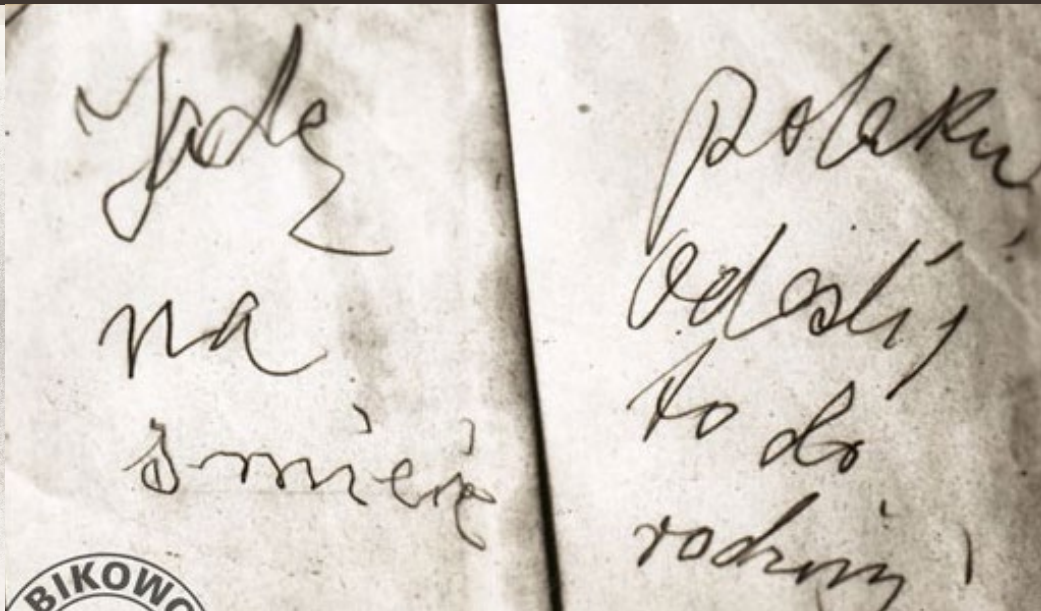 Jadę
na
śmierć
polaku
odeślij
to do
rodziny
BIKOWO